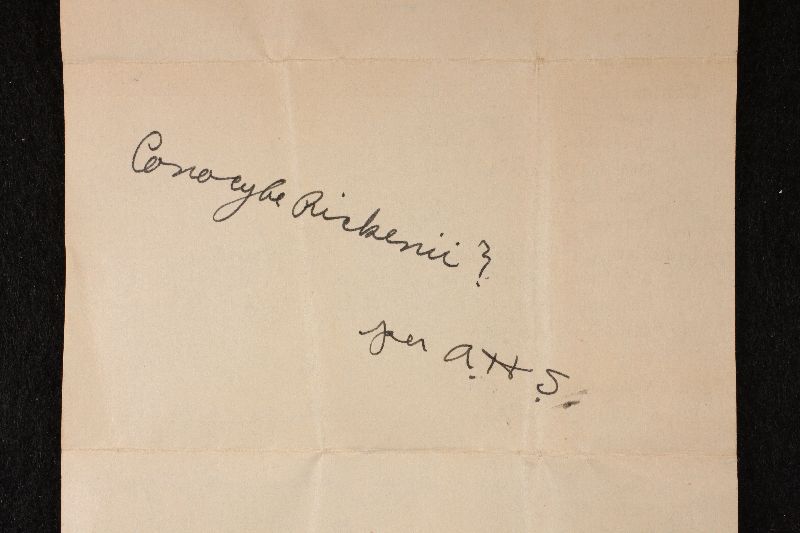 Conocybe Rickenii?
per A.H.S.